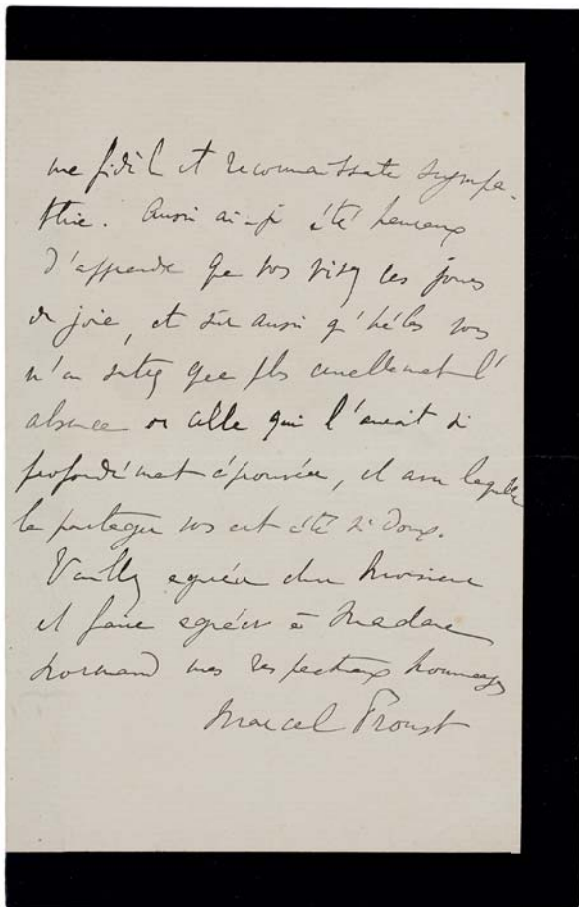 une fidèle et reconnaissante sympa-
thie. Aussi ai-je été heureux
d'apprendre que vous viviez ces jours
de joie, et sûr aussi qu'hélas vous
n'en sentiez que plus cruellement l'
absence de celle qui l'aurait si
profondément éprouvée, et avec laquelle
le partager vous eut été si doux.
Veuillez agréer cher Monsieur
et faire agréer à Madame
Normand mes respectueux hommages
Marcel Proust